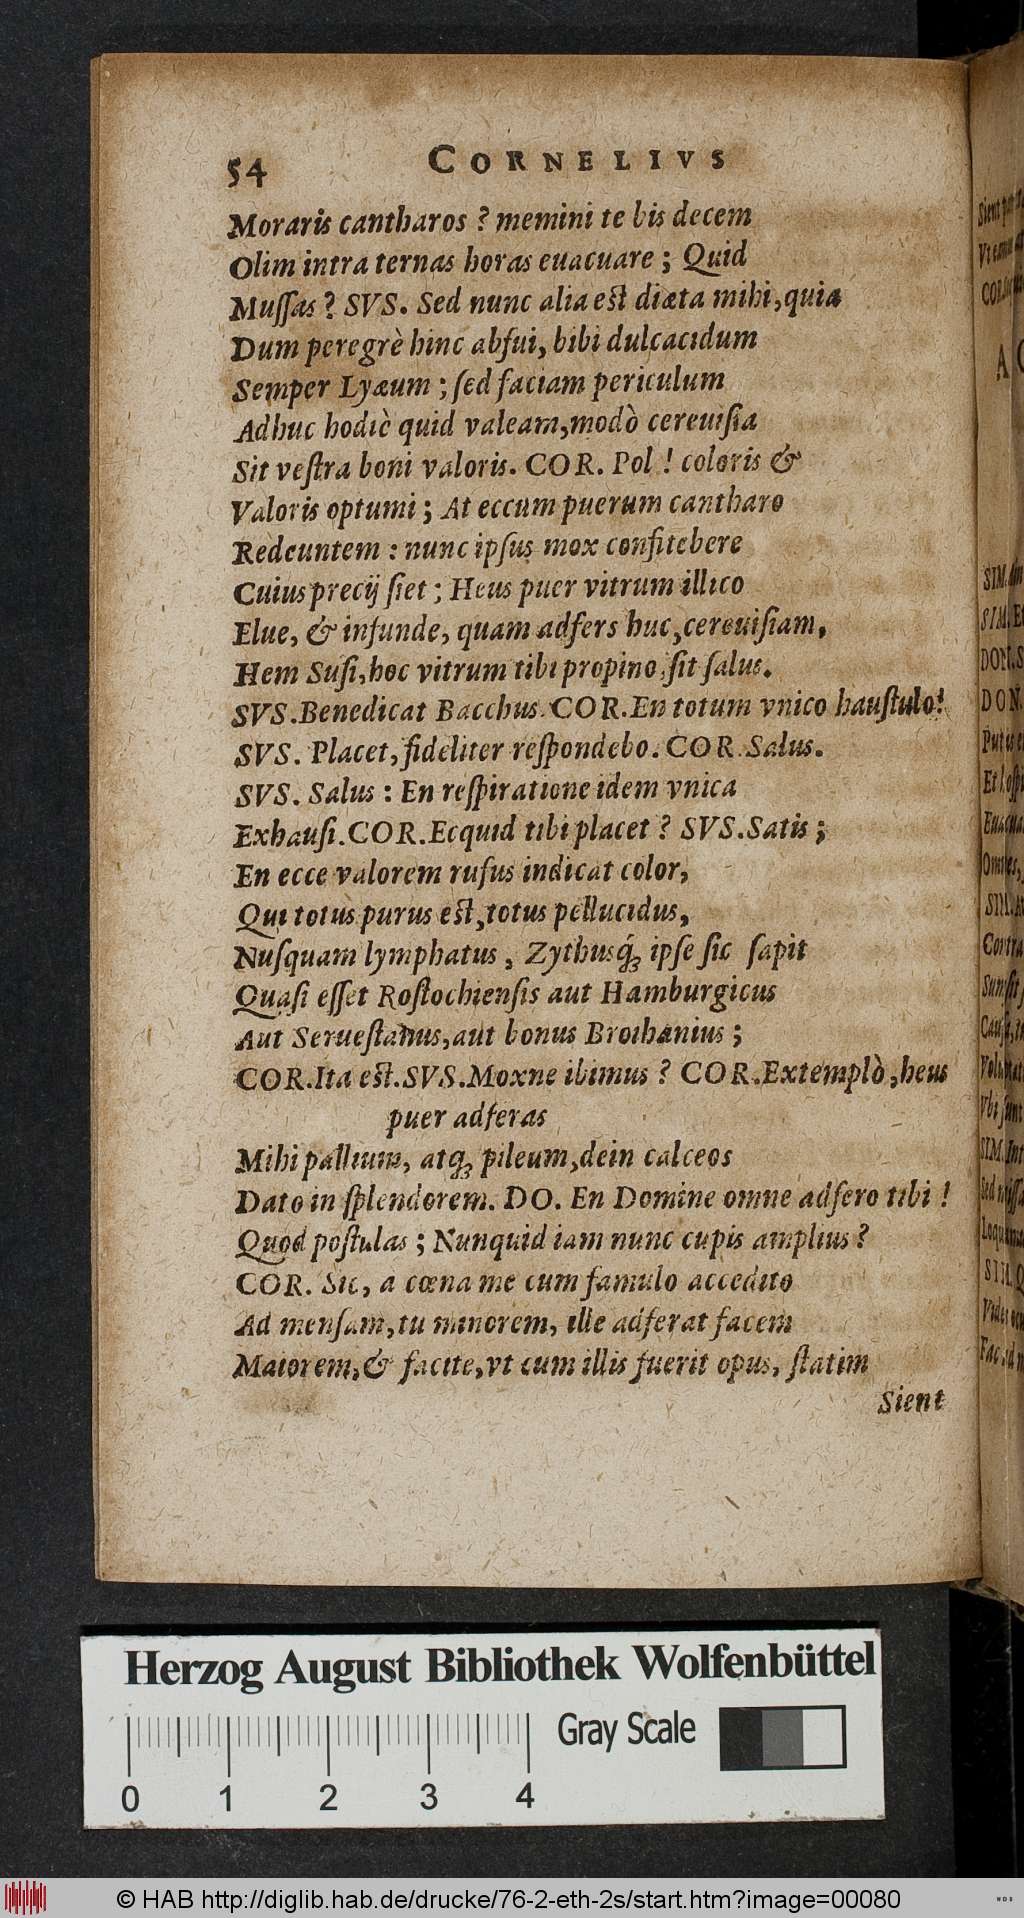 54 CORNELIVS
Moraris cantharos ? memini te bis decem
Olim intra ternas horas euacuare ; Quid
Muſſas ? SVS. Sed nunc alia eſt diæta mihi, quia
Dum peregrè hinc abfui, bibi dulcacidum
Semper Lyæum ; ſed faciam periculum
Adhuc hodiè quid valeam, modò cereuiſia
Sit veſtra boni valoris. COR. Pol ! coloris &
Valoris optumi ; At eccum puerum cantharo
Redeuntem : nunc ipſus mox confitebere
Cuius precij ſiet ; Heus puer vitrum illico
Elue, & infunde, quam adfers huc, cereuiſiam,
Hem Suſi, hoc vitrum tibi propino, ſit ſalus.
SVS. Benedicat Bacchus. COR. En totum vnico hauſtulo!
SVS. Placet, fideliter reſpondebo. COR. Salus.
SVS. Salus : En reſpiratione idem vnica
Exhauſi. COR. Ecquid tibi placet ? SVS. Satis ;
En ecce valorem rufus indicat color,
Qui totus purus eſt, totus pellucidus,
Nuſquam lymphatus, Zythusq́ꝫ ipſe ſic ſapit
Quaſi eſſet Roſtochienſis aut Hamburgicus
Aut Serueſtanus, aut bonus Broihanius ;
COR. Ita eſt. SVS. Moxne ibimus ? COR. Extemplò, heus
puer adferas
Mihi pallium, atqꝫ pileum, dein calceos
Dato in ſplendorem. DO. En Domine omne adfero tibi !
Quod poſtulas ; Nunquid iam nunc cupis amplius ?
COR. Sic, a cœna me cum famulo accedito
Ad menſam, tu minorem, ille adferat facem
Maiorem, & facite, vt cum illis fuerit opus, ſtatim
Sient
Herzog August Bibliothek Wolfenbüttel
Gray Scale
0 1 2 3 4
© HAB http://diglib.hab.de/drucke/76-2-eth-2s/start.htm?image=00080